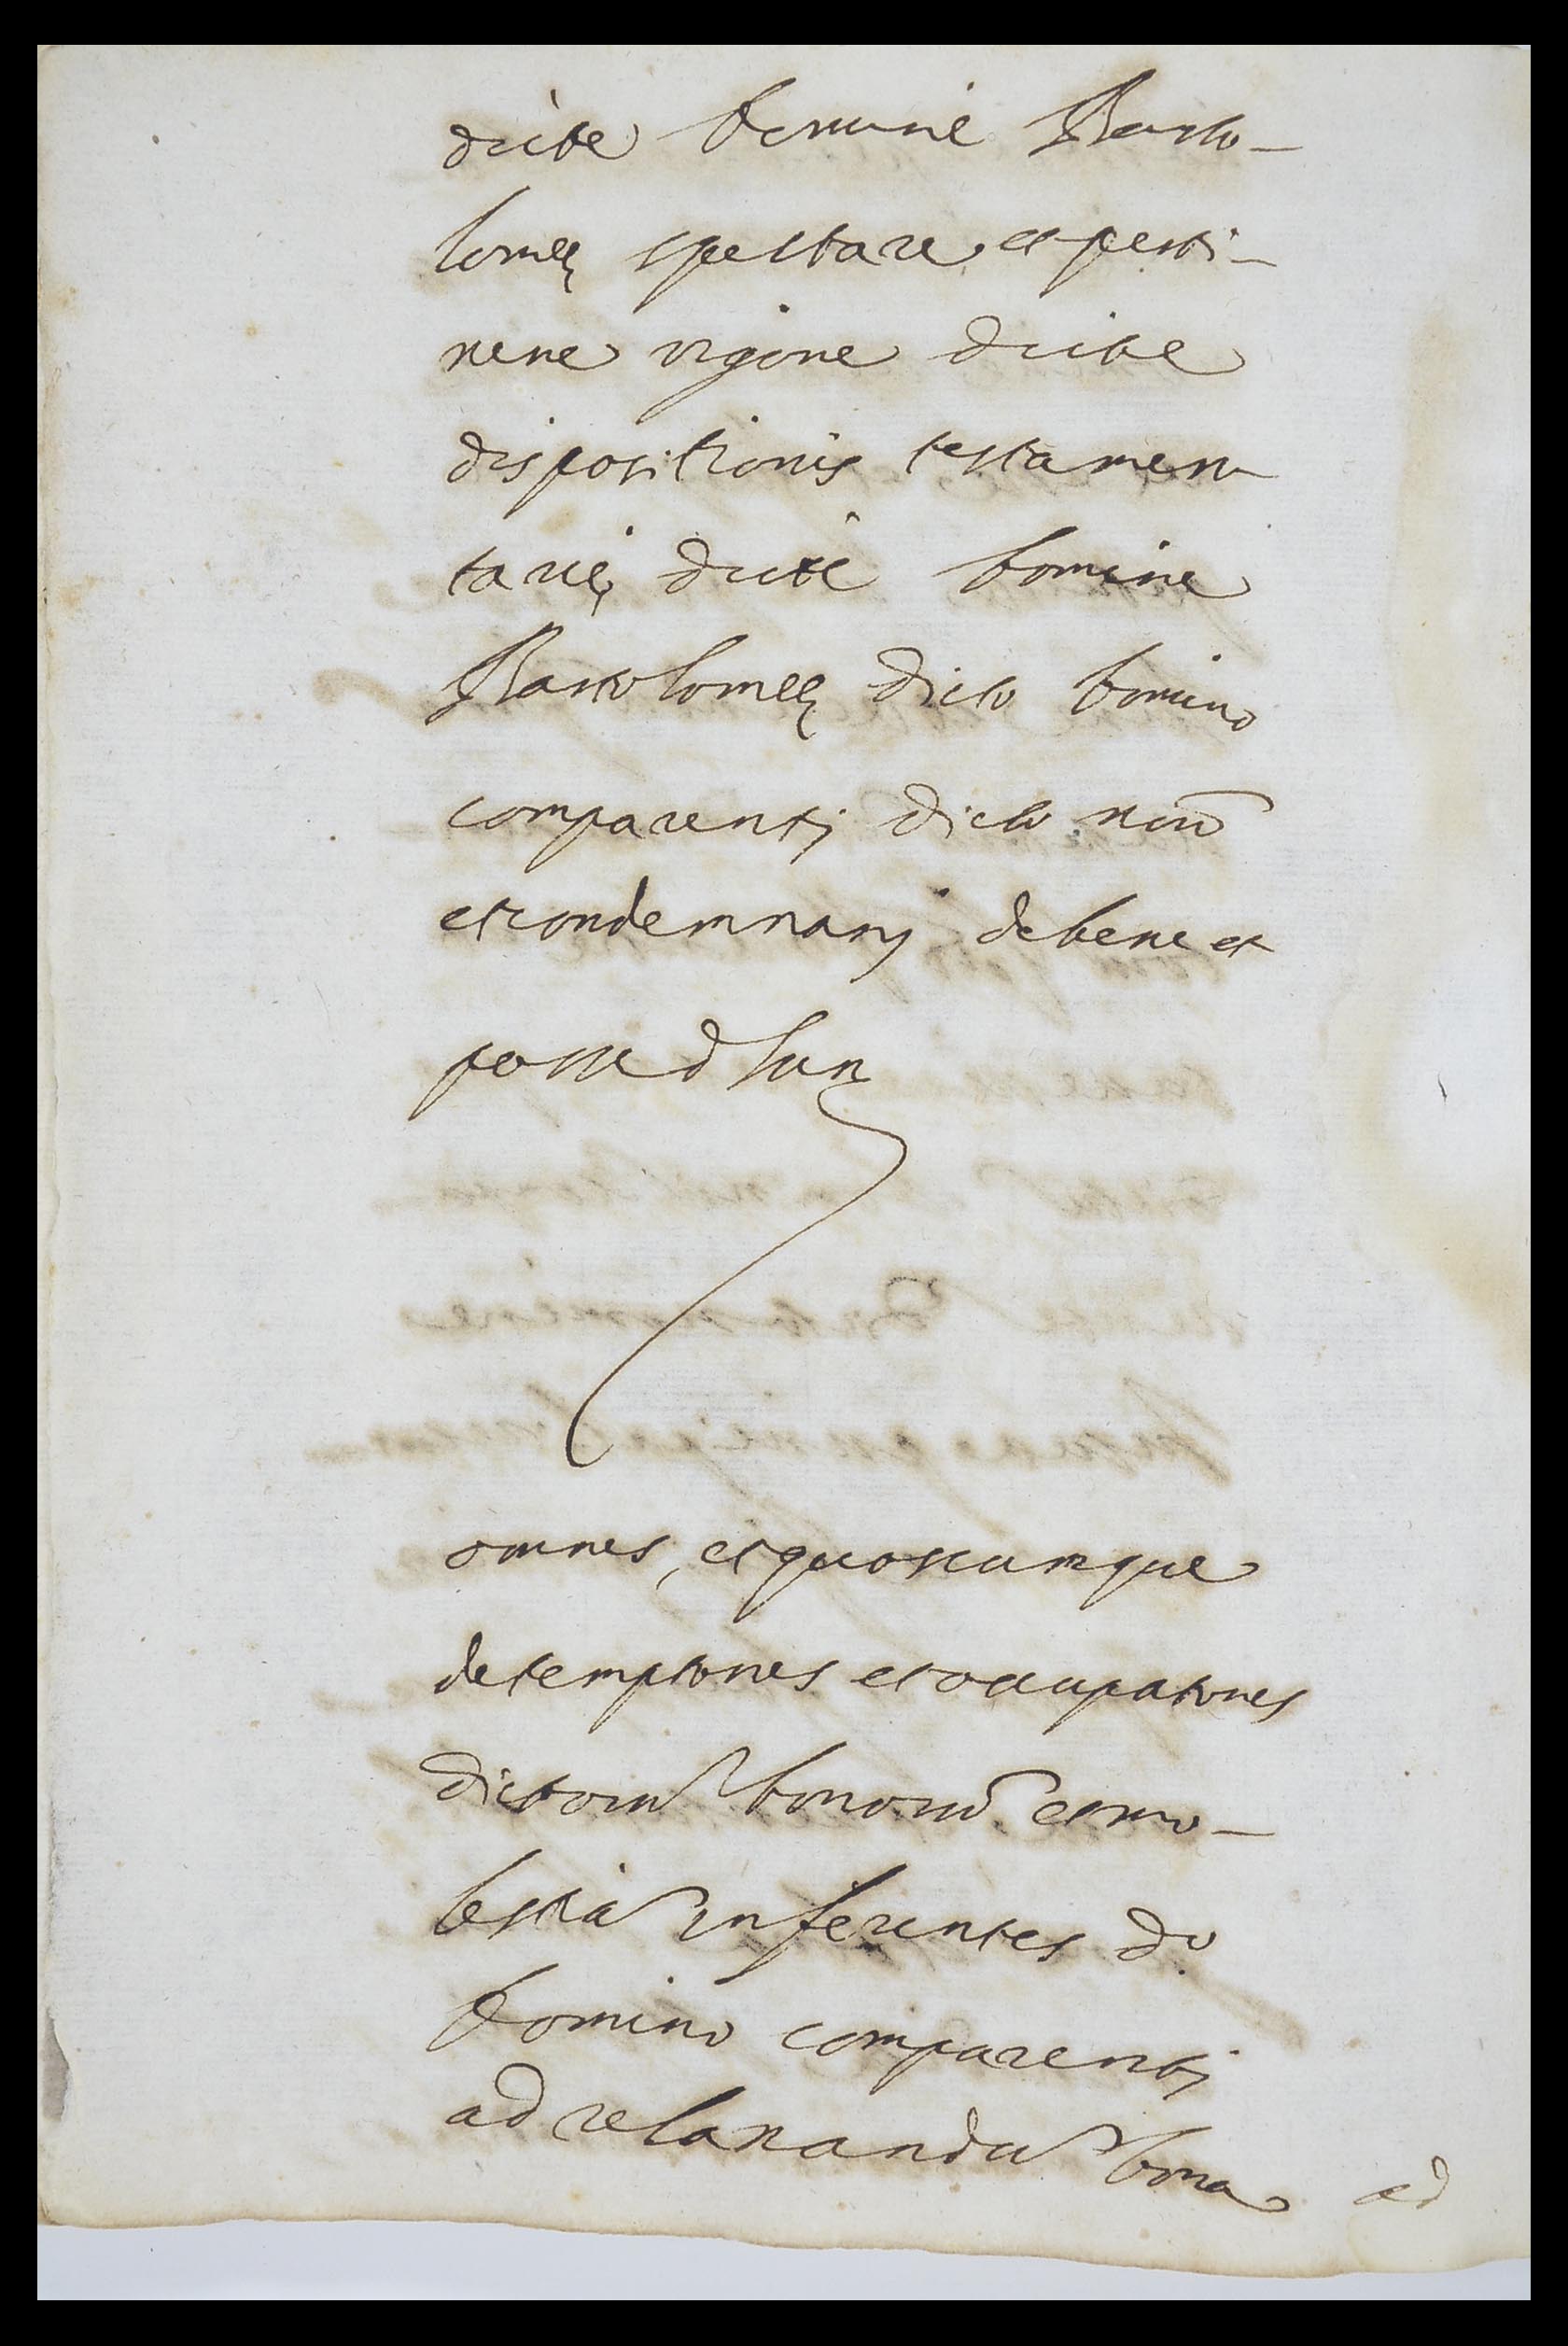 dicte Domine Barto-
lomeę spectare et perti-
nere vigore dicte
dispositionis testamen
tarię dicte Domine
Bartolomeę dicto Domino
comparenti dicto noĩe
et condemnarj debere et
posse
omnes, et quoscumque
detemptores et occupatores
dictorũ bonorũ et mo-
lestiã inferentes dº
Domino comparentj
ad relaxandũ bona
ad